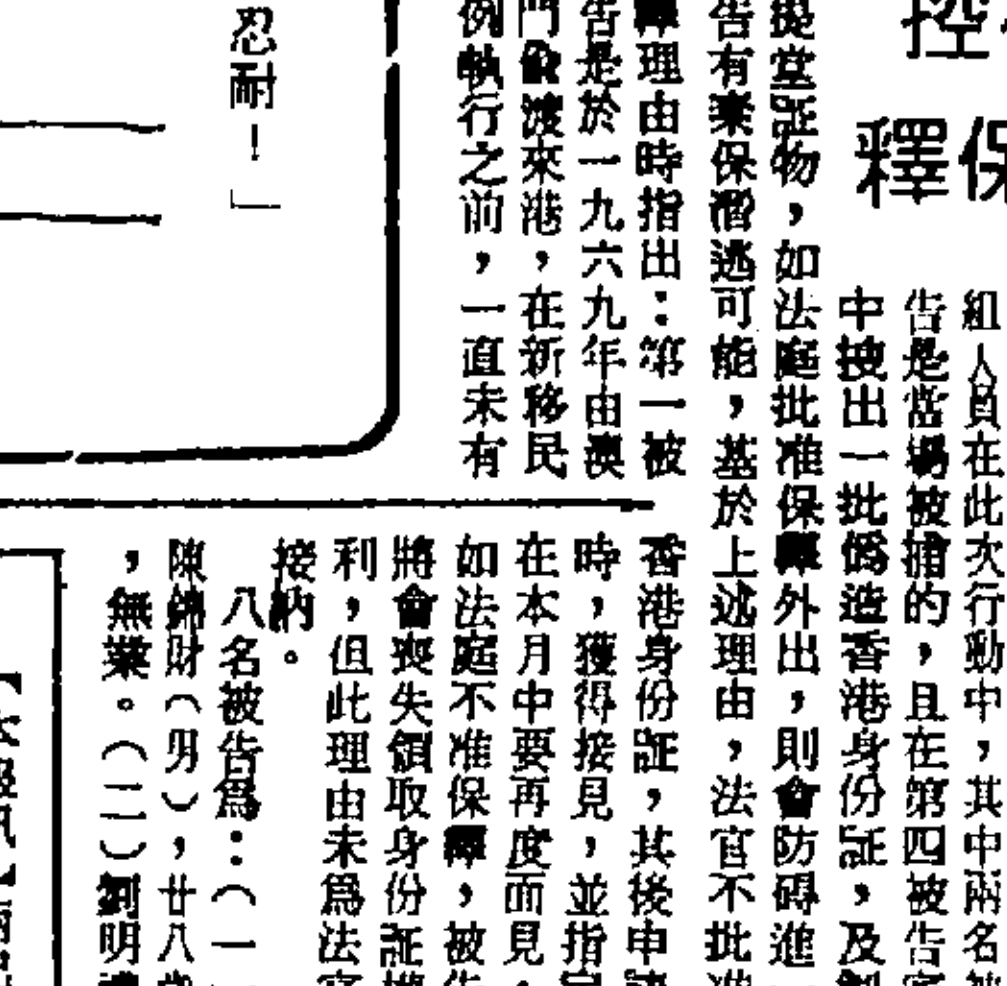 控
保
釋
組人員在此次行動中，其中兩名被
告是當場被捕的，且在第四被告家
中搜出一批僞造香港身份証，及製
提堂証物，如法庭批准保釋外出，則會防碍進一
告有棄保潛逃可能，基於上述理由，法官不批准
釋理由時指出：第一被
告是於一九六九年由澳
門偷渡來港，在新移民
例執行之前，一直未有
香港身份証，其後申請
時，獲得接見，並指定
在本月中要再度面見，
如法庭不准保釋，被告
將會喪失領取身份証權
利，但此理由未爲法官
接納。
八名被告爲：（一）
陳錦財（男），廿八歲
，無業。（二）劉明
忍耐！」
【本報訊】